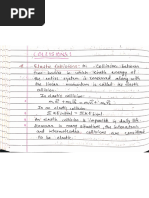 COLLISIONS !
Elastic Collision :- Collision between
two bodies in which kinetic energy of
the entire system is conserved along with
the linear momentum is called the elastic
collision.
In elastic collision
In an elastic collision:
An elastic collision is impossible in daily life
However in many situations, the interatomic
and intermolecular collisions are considered
to be elastic.